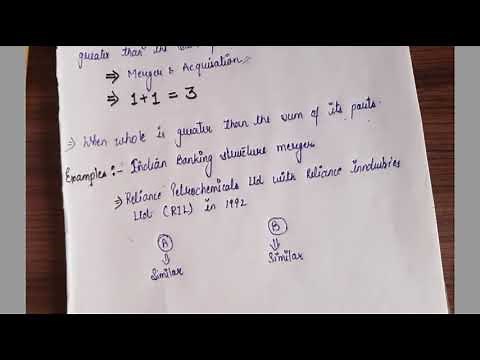 greater than the
⇒ Merger & Acquisation
⇒ 1+1 = 3
⇒ When whole is greater than the sum of its parts.
Examples :- Indian Banking structure merger
⇒ Reliance Petrochemicals Ltd with Reliance inndusries
Ltd (RIL) in 1992
A B
⇓ ⇓
Similar Similar